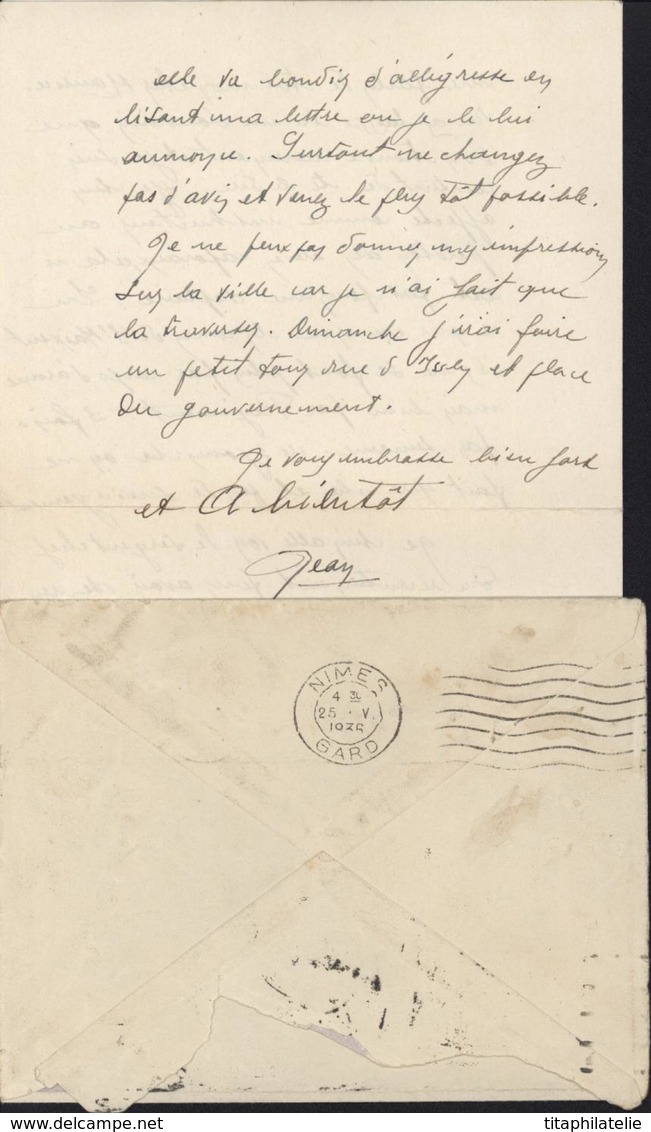 elle va bondir d'allégresse en
lisant ma lettre ou je le lui
annonce. Surtout ne changez
pas d'avis et venez le plus tôt possible.
Je ne peux pas donner mes impressions
sur la ville car je n'ai fait que
la traverser. Dimanche j'irai faire
un petit tour rue d'Isly et place
du gouvernement.
Je vous embrasse bien fort
et A bientôt
Jean
NIMES
4 30
25 V.
1936
GARD
titaphilatelie